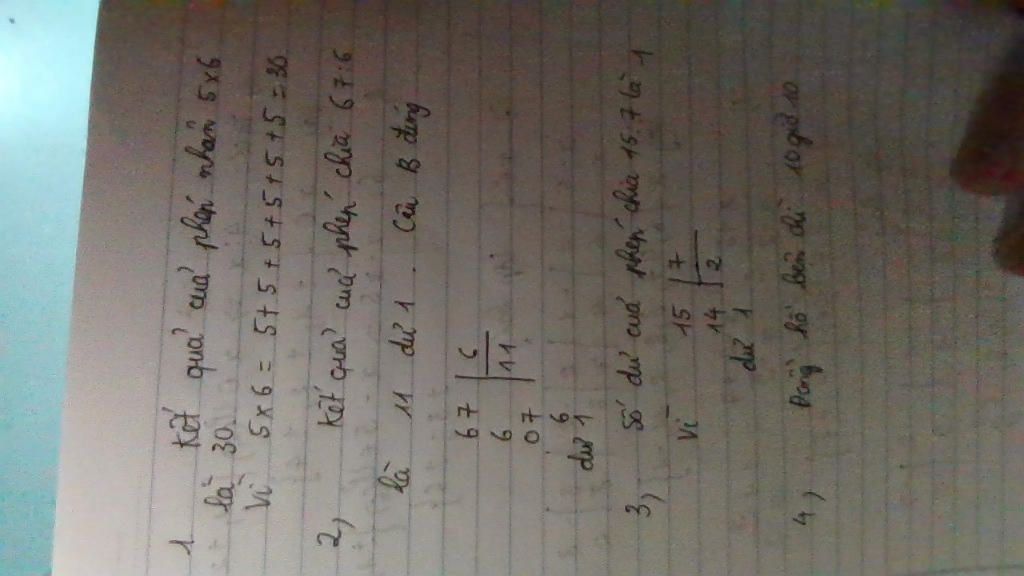 1 Kết quả của phép nhân 5x6
là 30.
Vì 5x6 = 5+5+5+5+5+5 = 30
2, Kết quả của phép chia 67:6
là 11 dư 1. Câu B đúng
67 6
6 11
07
6
dư 1
3, Số dư của phép chia 15:7 là 1
Vì 15 7
14 2
dư 1
4, Đồng hồ bên chỉ 10 giờ 10